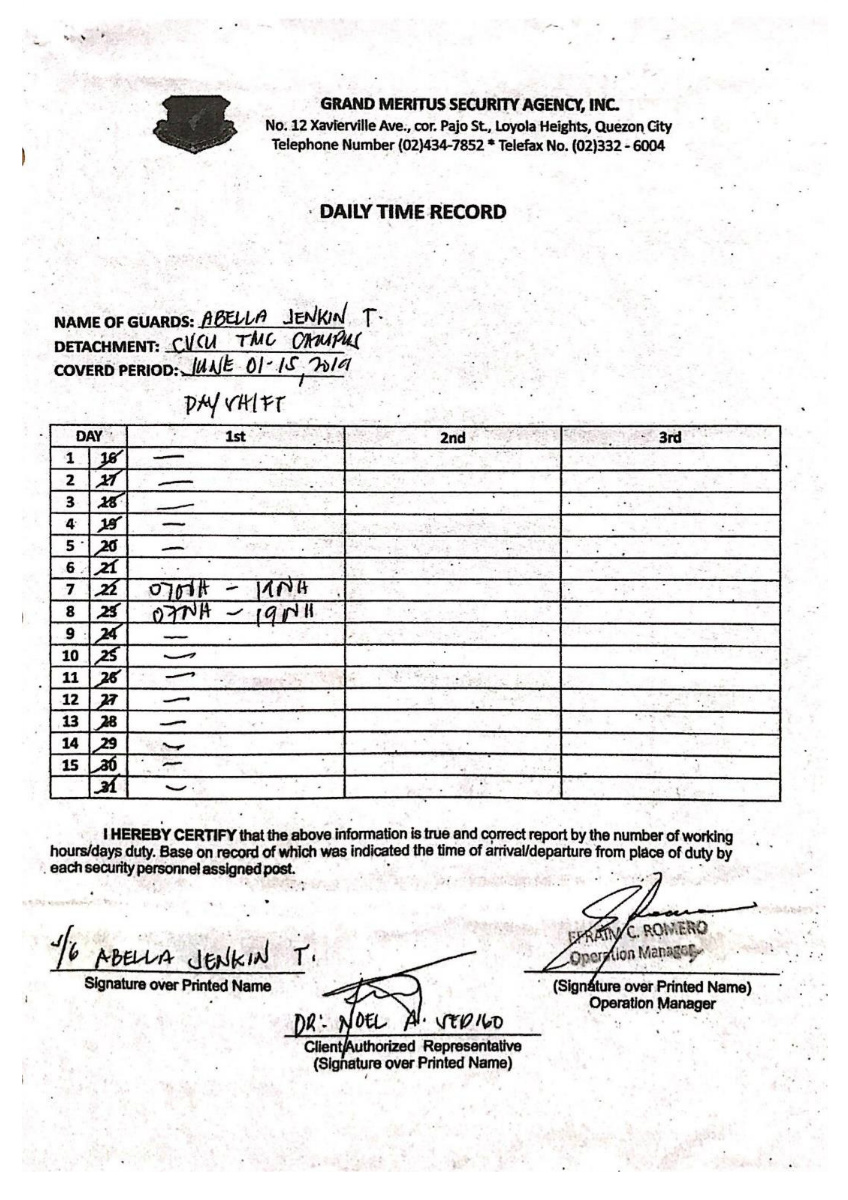 GRAND MERITUS SECURITY AGENCY, INC.
No. 12 Xavierville Ave., cor. Pajo St., Loyola Heights, Quezon City
Telephone Number (02)434-7852 * Telefax No. (02)332 - 6004
DAILY TIME RECORD
NAME OF GUARDS: ABELLA JENKIN T.
DETACHMENT: CVCU TMC CAMPUS
COVERD PERIOD: JUNE 01-15, 2019
DAY SHIFT
DAY 1st 2nd 3rd
1 16 —
2 17 —
3 18 —
4 19 —
5 20 —
6 21
7 22 0700H - 19NH
8 23 07NH - 19NH
9 24 —
10 25 —
11 26 —
12 27 —
13 28 —
14 29 —
15 30 —
31 —
I HEREBY CERTIFY that the above information is true and correct report by the number of working
hours/days duty. Base on record of which was indicated the time of arrival/departure from place of duty by
each security personnel assigned post.
EFRAIM C. ROMERO
Operation Manager
S/G ABELLA JENKIN T.
Signature over Printed Name
(Signature over Printed Name)
Operation Manager
DR. NOEL A. SEDIGO
Client/Authorized Representative
(Signature over Printed Name)